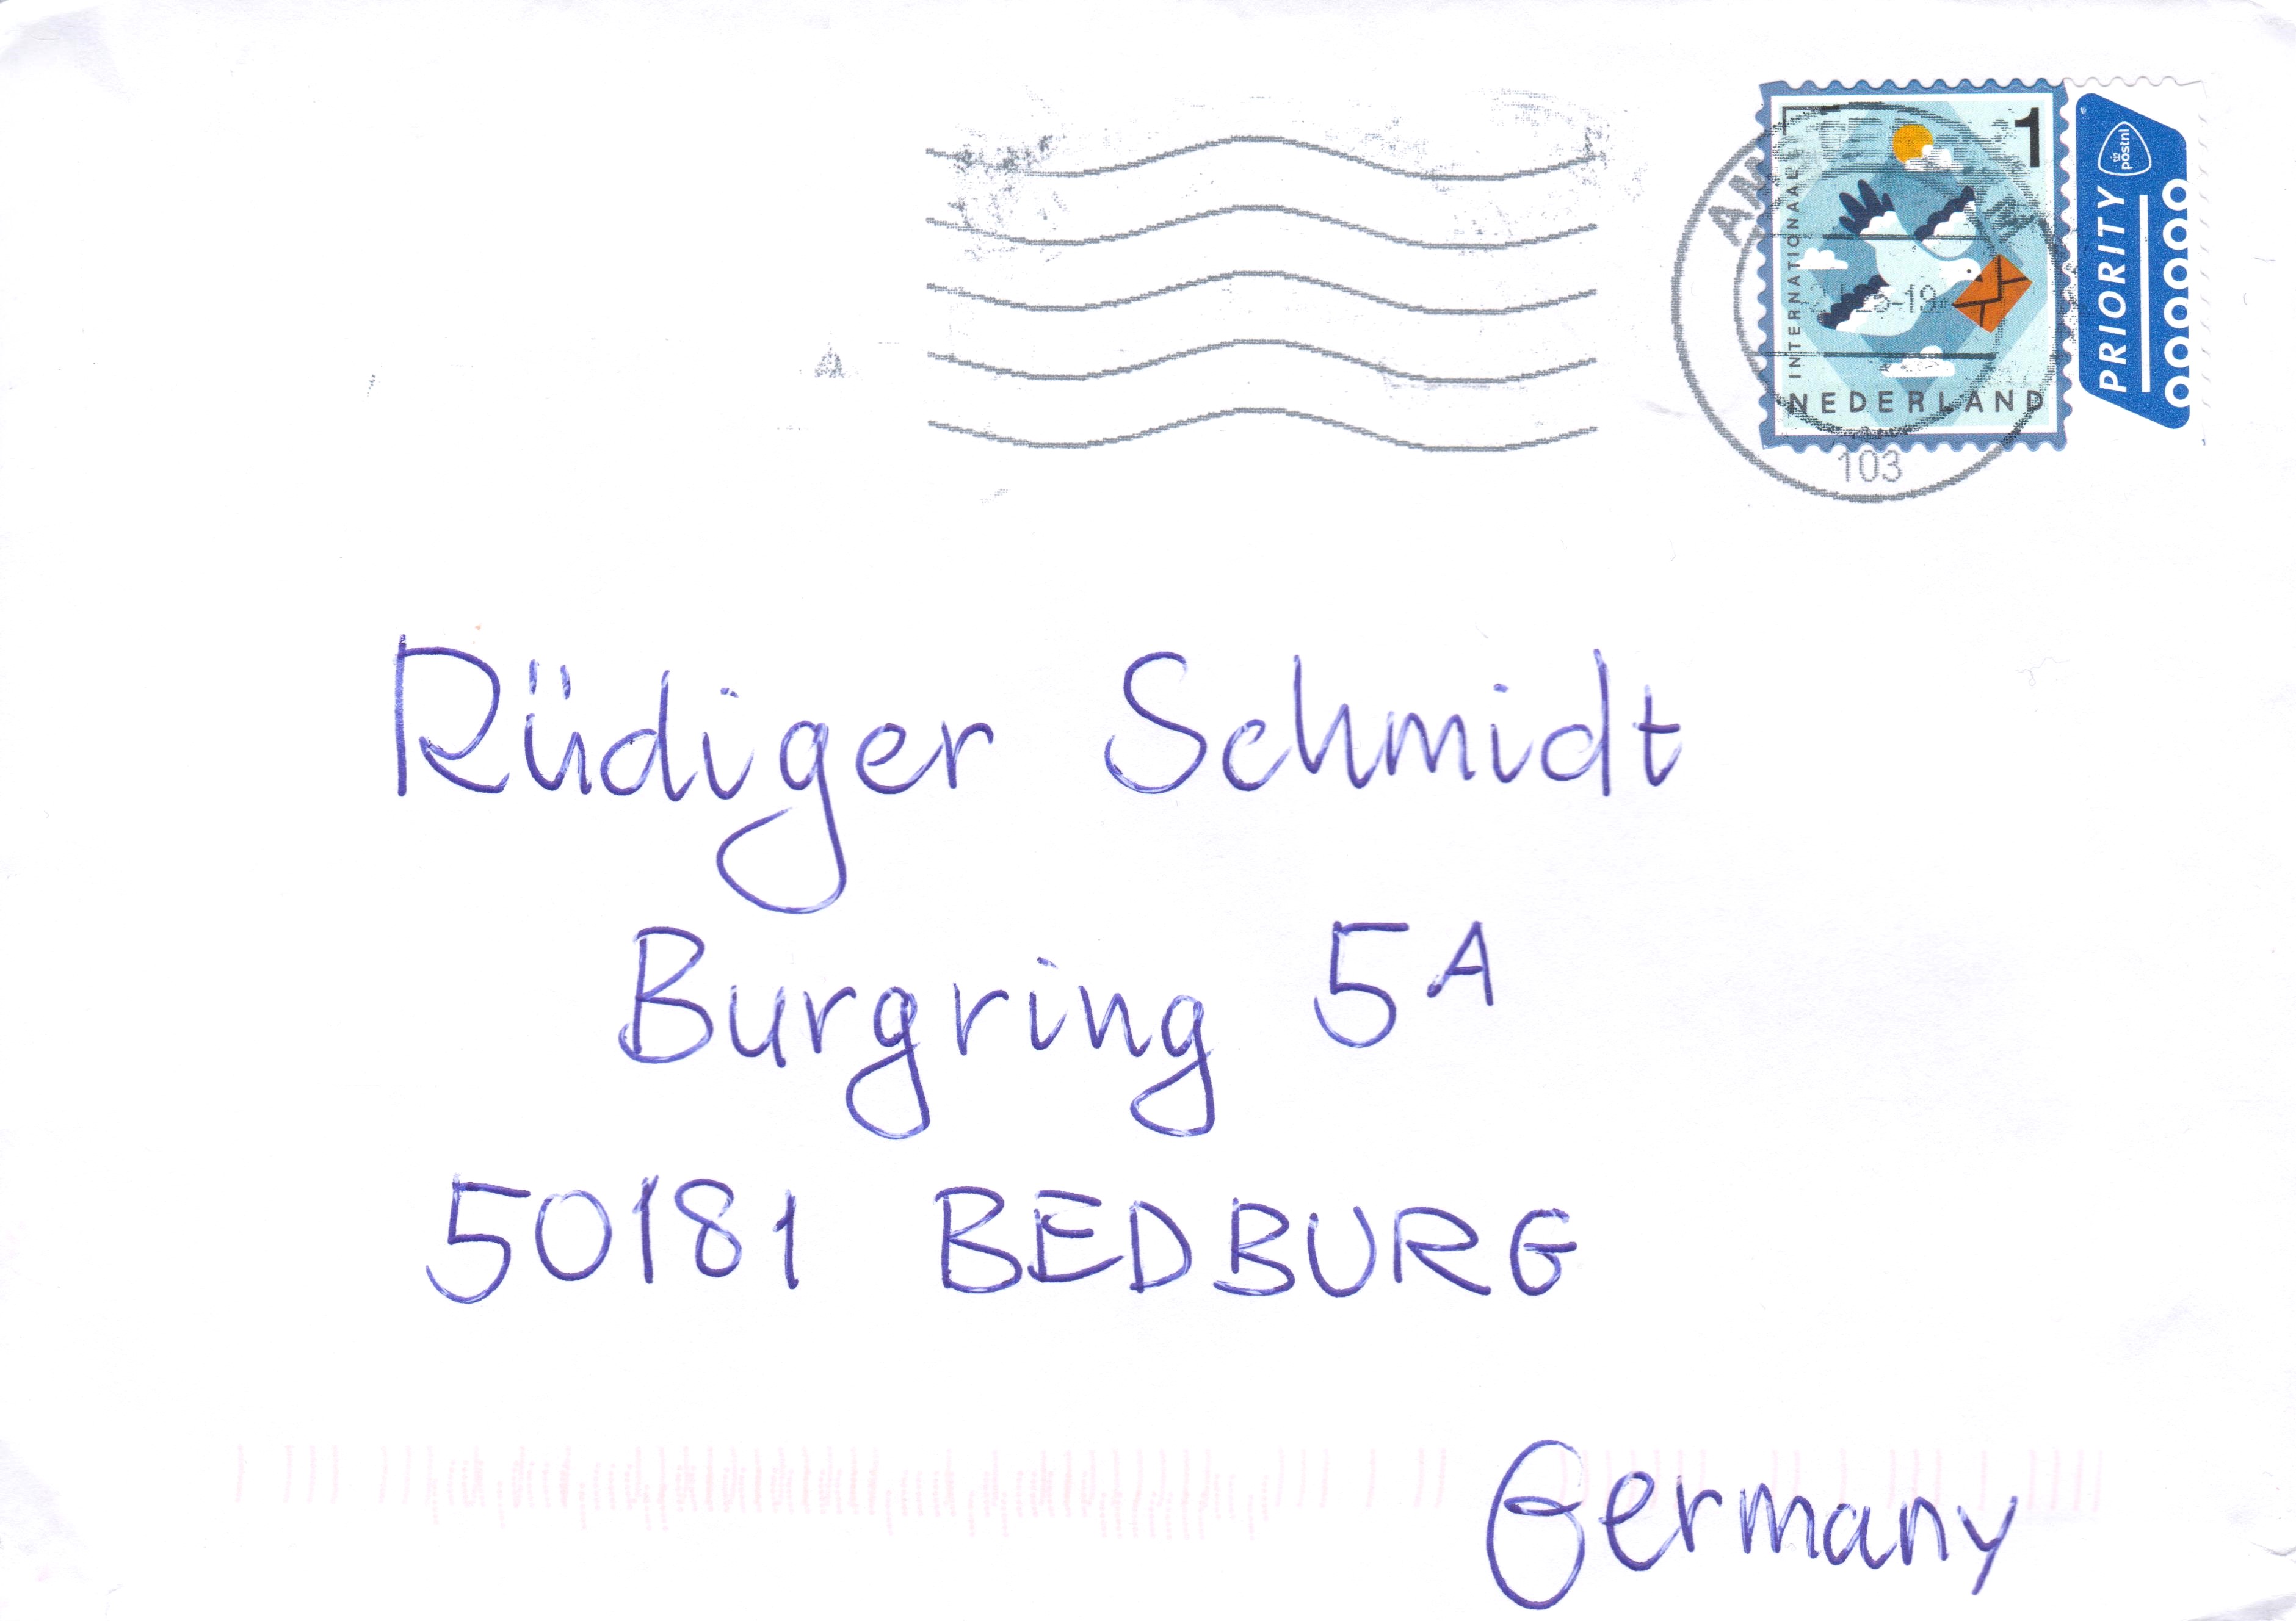 1
INTERNATIONAAL
NEDERLAND
PRIORITY
postnl
103
Rüdiger Schmidt
Burgring 5A
50181 BEDBURG
Germany